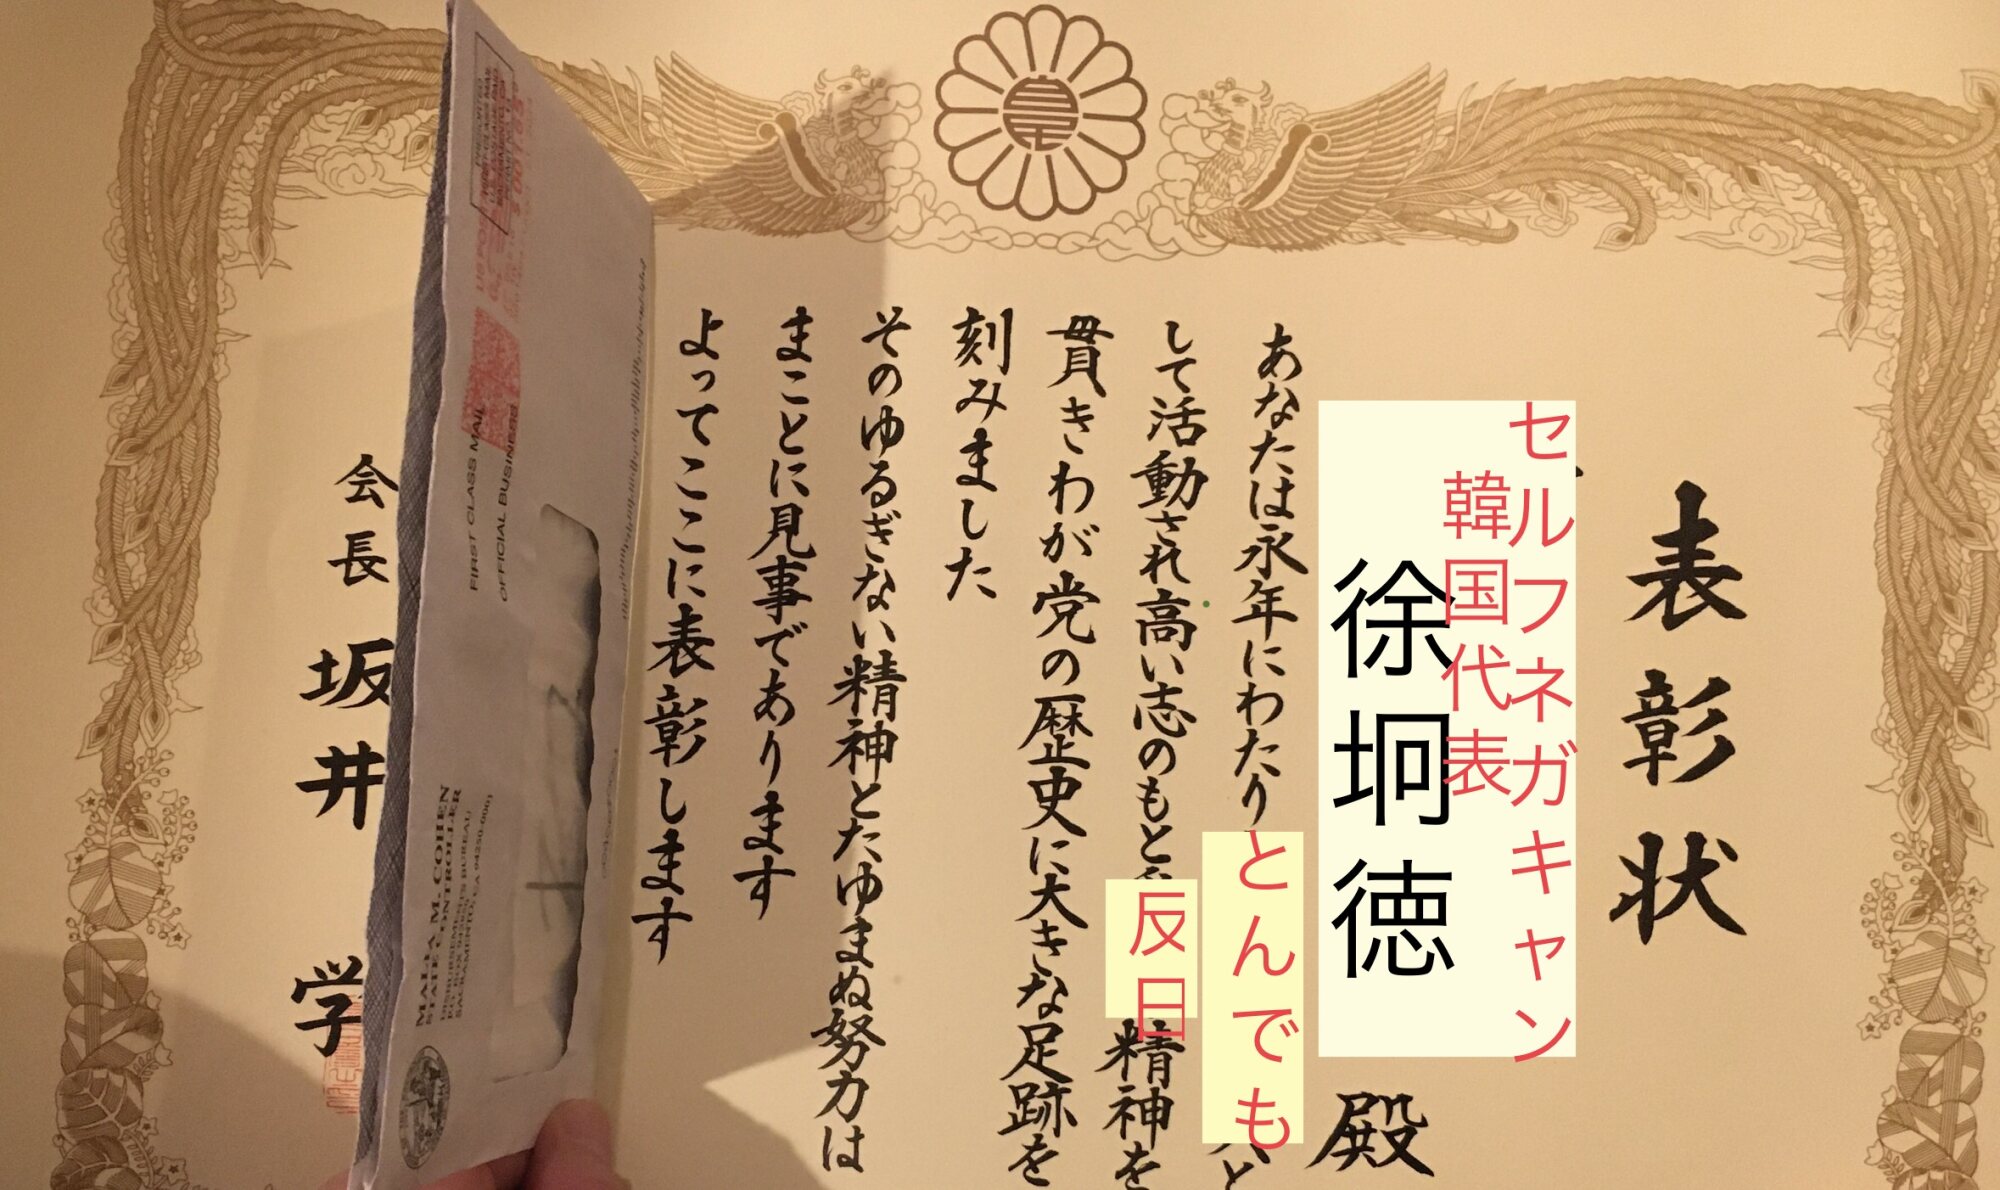 表彰状
セルフネガキャン
韓国代表
徐坰徳
殿
あなたは永年にわたり
とんでも
して活動され高い志のもと
反日
精神を
貫きわが党の歴史に大きな足跡を
刻みました
そのゆるぎない精神とたゆまぬ努力は
まことに見事であります
よってここに表彰します
会長 坂井 学
PRESORTED
FIRST CLASS MAIL
OFFICIAL BUSINESS
MALIA M. COHEN
STATE CONTROLLER
DISBURSEMENTS BUREAU
PO BOX 942850
SACRAMENTO, CA 94250-0001